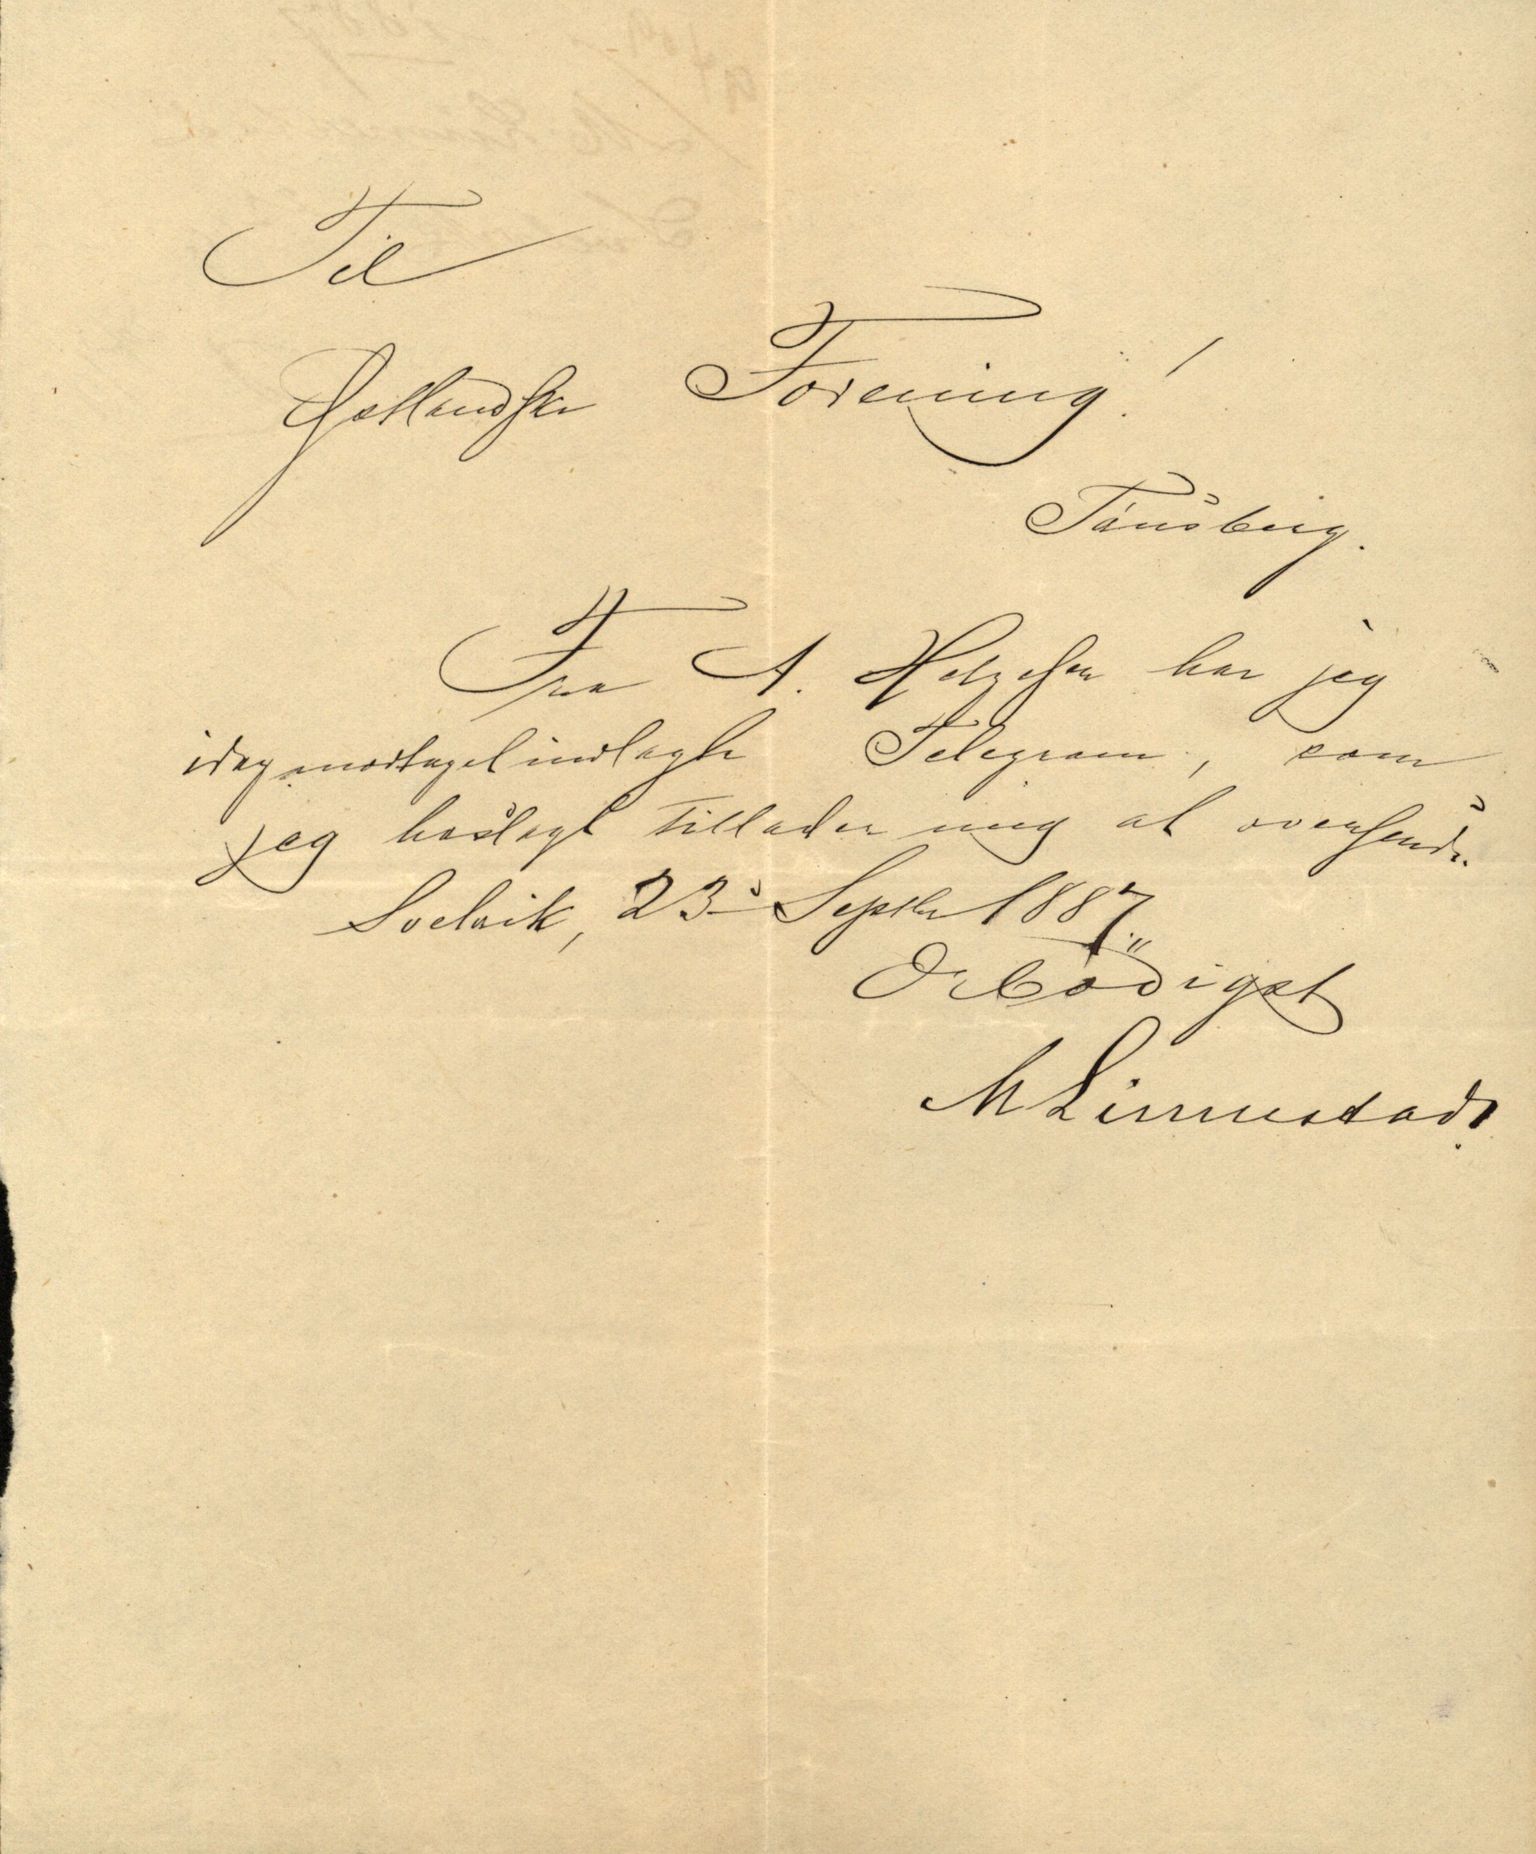 Til
Østlandske Forening!
Tönsberg.
Fra A. Helgesen har jeg
idag modtaget indlagte Telegram, som
jeg hoslagt tillader mig at oversende.
Svelvik, 23 Septbr 1887.
Ærbödigst
M Linnestad.